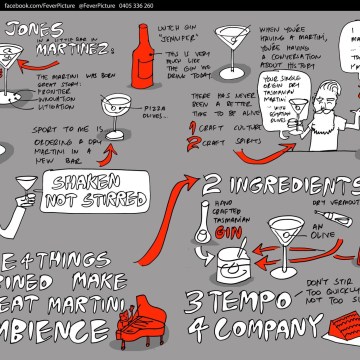 facebook.com/FeverPicture @FeverPicture 0403 336 260
JONES
IN A LITTLE BAR IN
MARTINEZ.
THE MARTINI WAS BORN
GREAT STORY:
FRONTIER
INNOVATION
LITIGATION
DUTCH GIN
"JENEVER"
THIS IS VERY
MUCH LIKE
THE GIN WE
DRINK TODAY.
PIZZA
OLIVES...
SPORT TO ME IS
ORDERING A DRY
MARTINI IN A
NEW BAR.
WHEN YOU'RE
HAVING A MARTINI,
YOU'RE
HAVING A
CONVERSATION
ABOUT HISTORY
THERE HAS NEVER
BEEN A BETTER
TIME TO BE ALIVE
1 CRAFT CULTURE
2 CRAFT SPIRITS
YOUR SINGLE
ORIGIN DRY
TASMANIAN
MARTINI
WITH
EGYPTIAN
OLIVES
SHAKEN
NOT STIRRED
2 INGREDIENTS
HAND
CRAFTED
TASMANIAN
GIN
DRY VERMOUTH
AN
OLIVE
E 4 THINGS
INED MAKE
EAT MARTINI
MBIENCE
3 TEMPO
DON'T STIR
TOO QUICKLY
NOT TOO SL
4 COMPANY